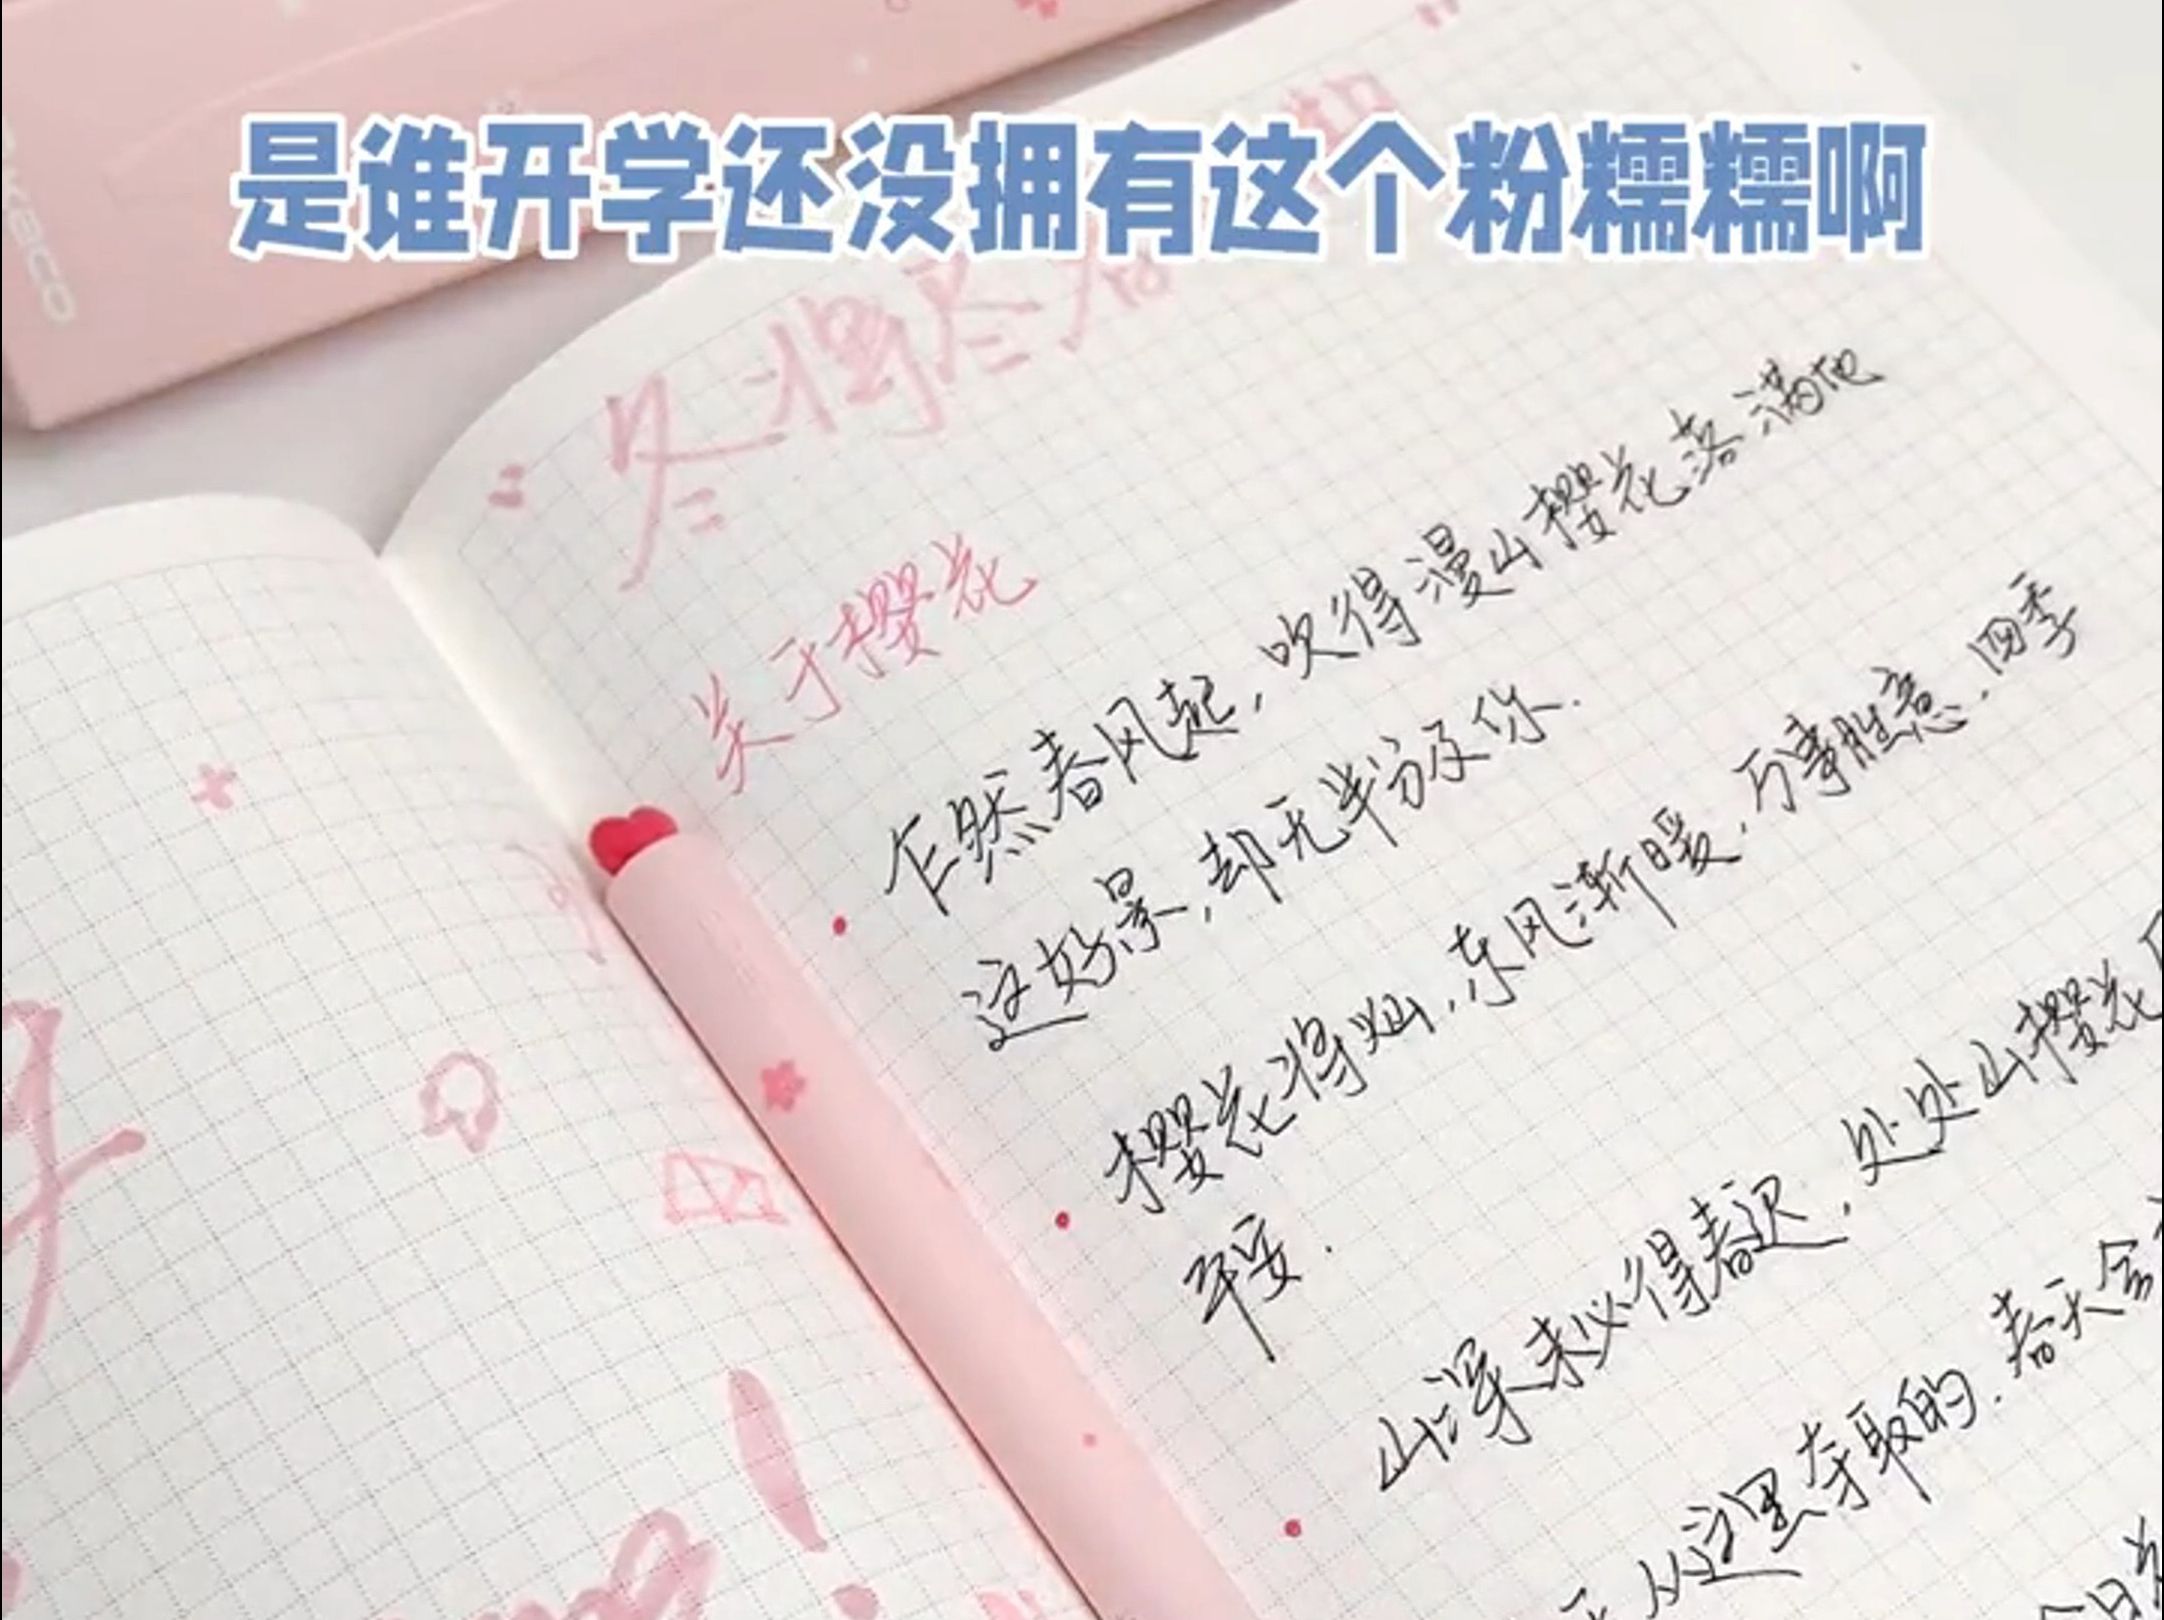 是谁开学还没拥有这个粉糯糯啊
"冬将尽春
关于樱花
乍然春风起,吹得漫山樱花落满地
这好景,却无半分及你.
樱花将灿,东风渐暖,万事胜意,四季
平安.
山深未必得春迟,处处山樱花
从这里夺取的.春天会